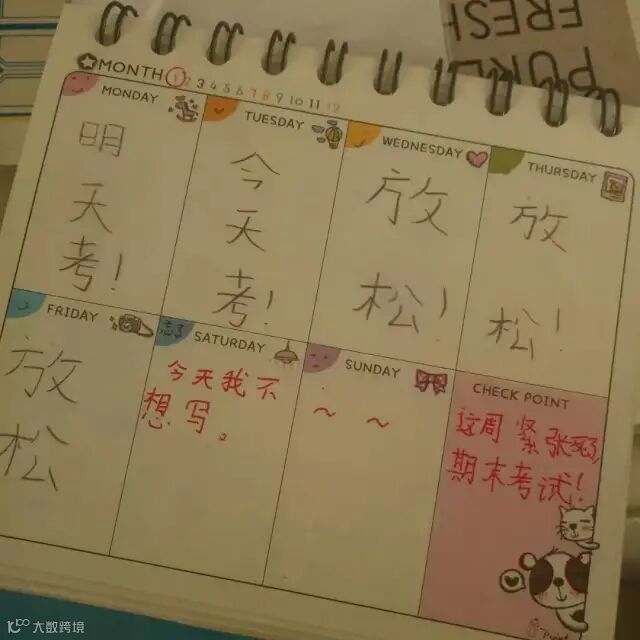 PURE
FRESH
MONTH 1 2 3 4 5 6 7 8 9 10 11 12
MONDAY
明
天
考!
TUESDAY
今
天
考!
WEDNESDAY
放
松!
THURSDAY
放
松!
FRIDAY
放
松
忘了
SATURDAY
今天我不
想写。
SUNDAY
~ ~
CHECK POINT
这周紧张死了,
期末考试!
大数跨境